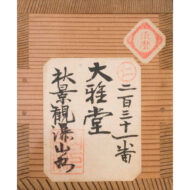 二百三十一番
大雅堂
秋景觀瀑山水